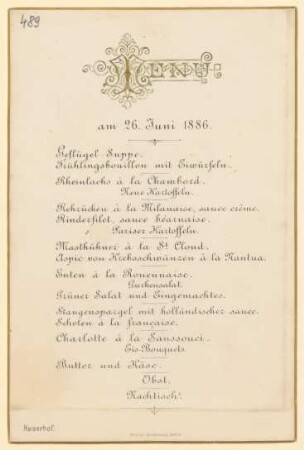 489
MENU
am 26. Juni 1886.
Geflügel Suppe.
Frühlingsbouillon mit Eiwürfeln.
Rheinlachs à la Chambord.
Neue Kartoffeln.
Rehrücken à la Milanaise, sauce crème.
Rinderfilet, sauce béarnaise.
Pariser Kartoffeln.
Masthühner à la St Cloud.
Aspic von Krebsschwänzen à la Nantua.
Enten à la Rouennaise.
Gurkensalat.
Grüner Salat und Eingemachtes.
Stangenspargel mit holländischer sauce.
Schoten à la française.
Charlotte à la Sanssouci.
Eis-Bouquets.
Butter und Käse.
Obst.
Nachtisch.
Kaiserhof.